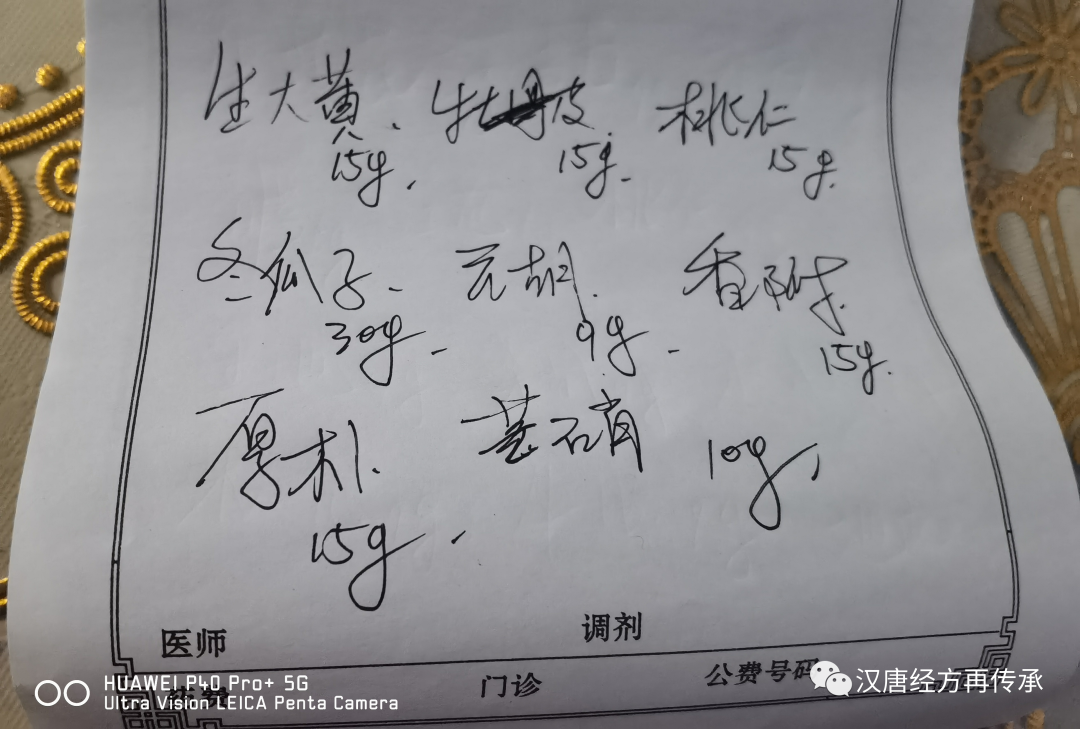 生大黄、 牡丹皮. 桃仁
15g, 15g. 15g.
冬瓜子. 元胡. 香附.
30g. 9g. 15g.
厚朴. 芒硝 10g,
15g.
医师 调剂
药费 门诊 公费号码
HUAWEI P40 Pro+ 5G
Ultra Vision LEICA Penta Camera
汉唐经方再传承